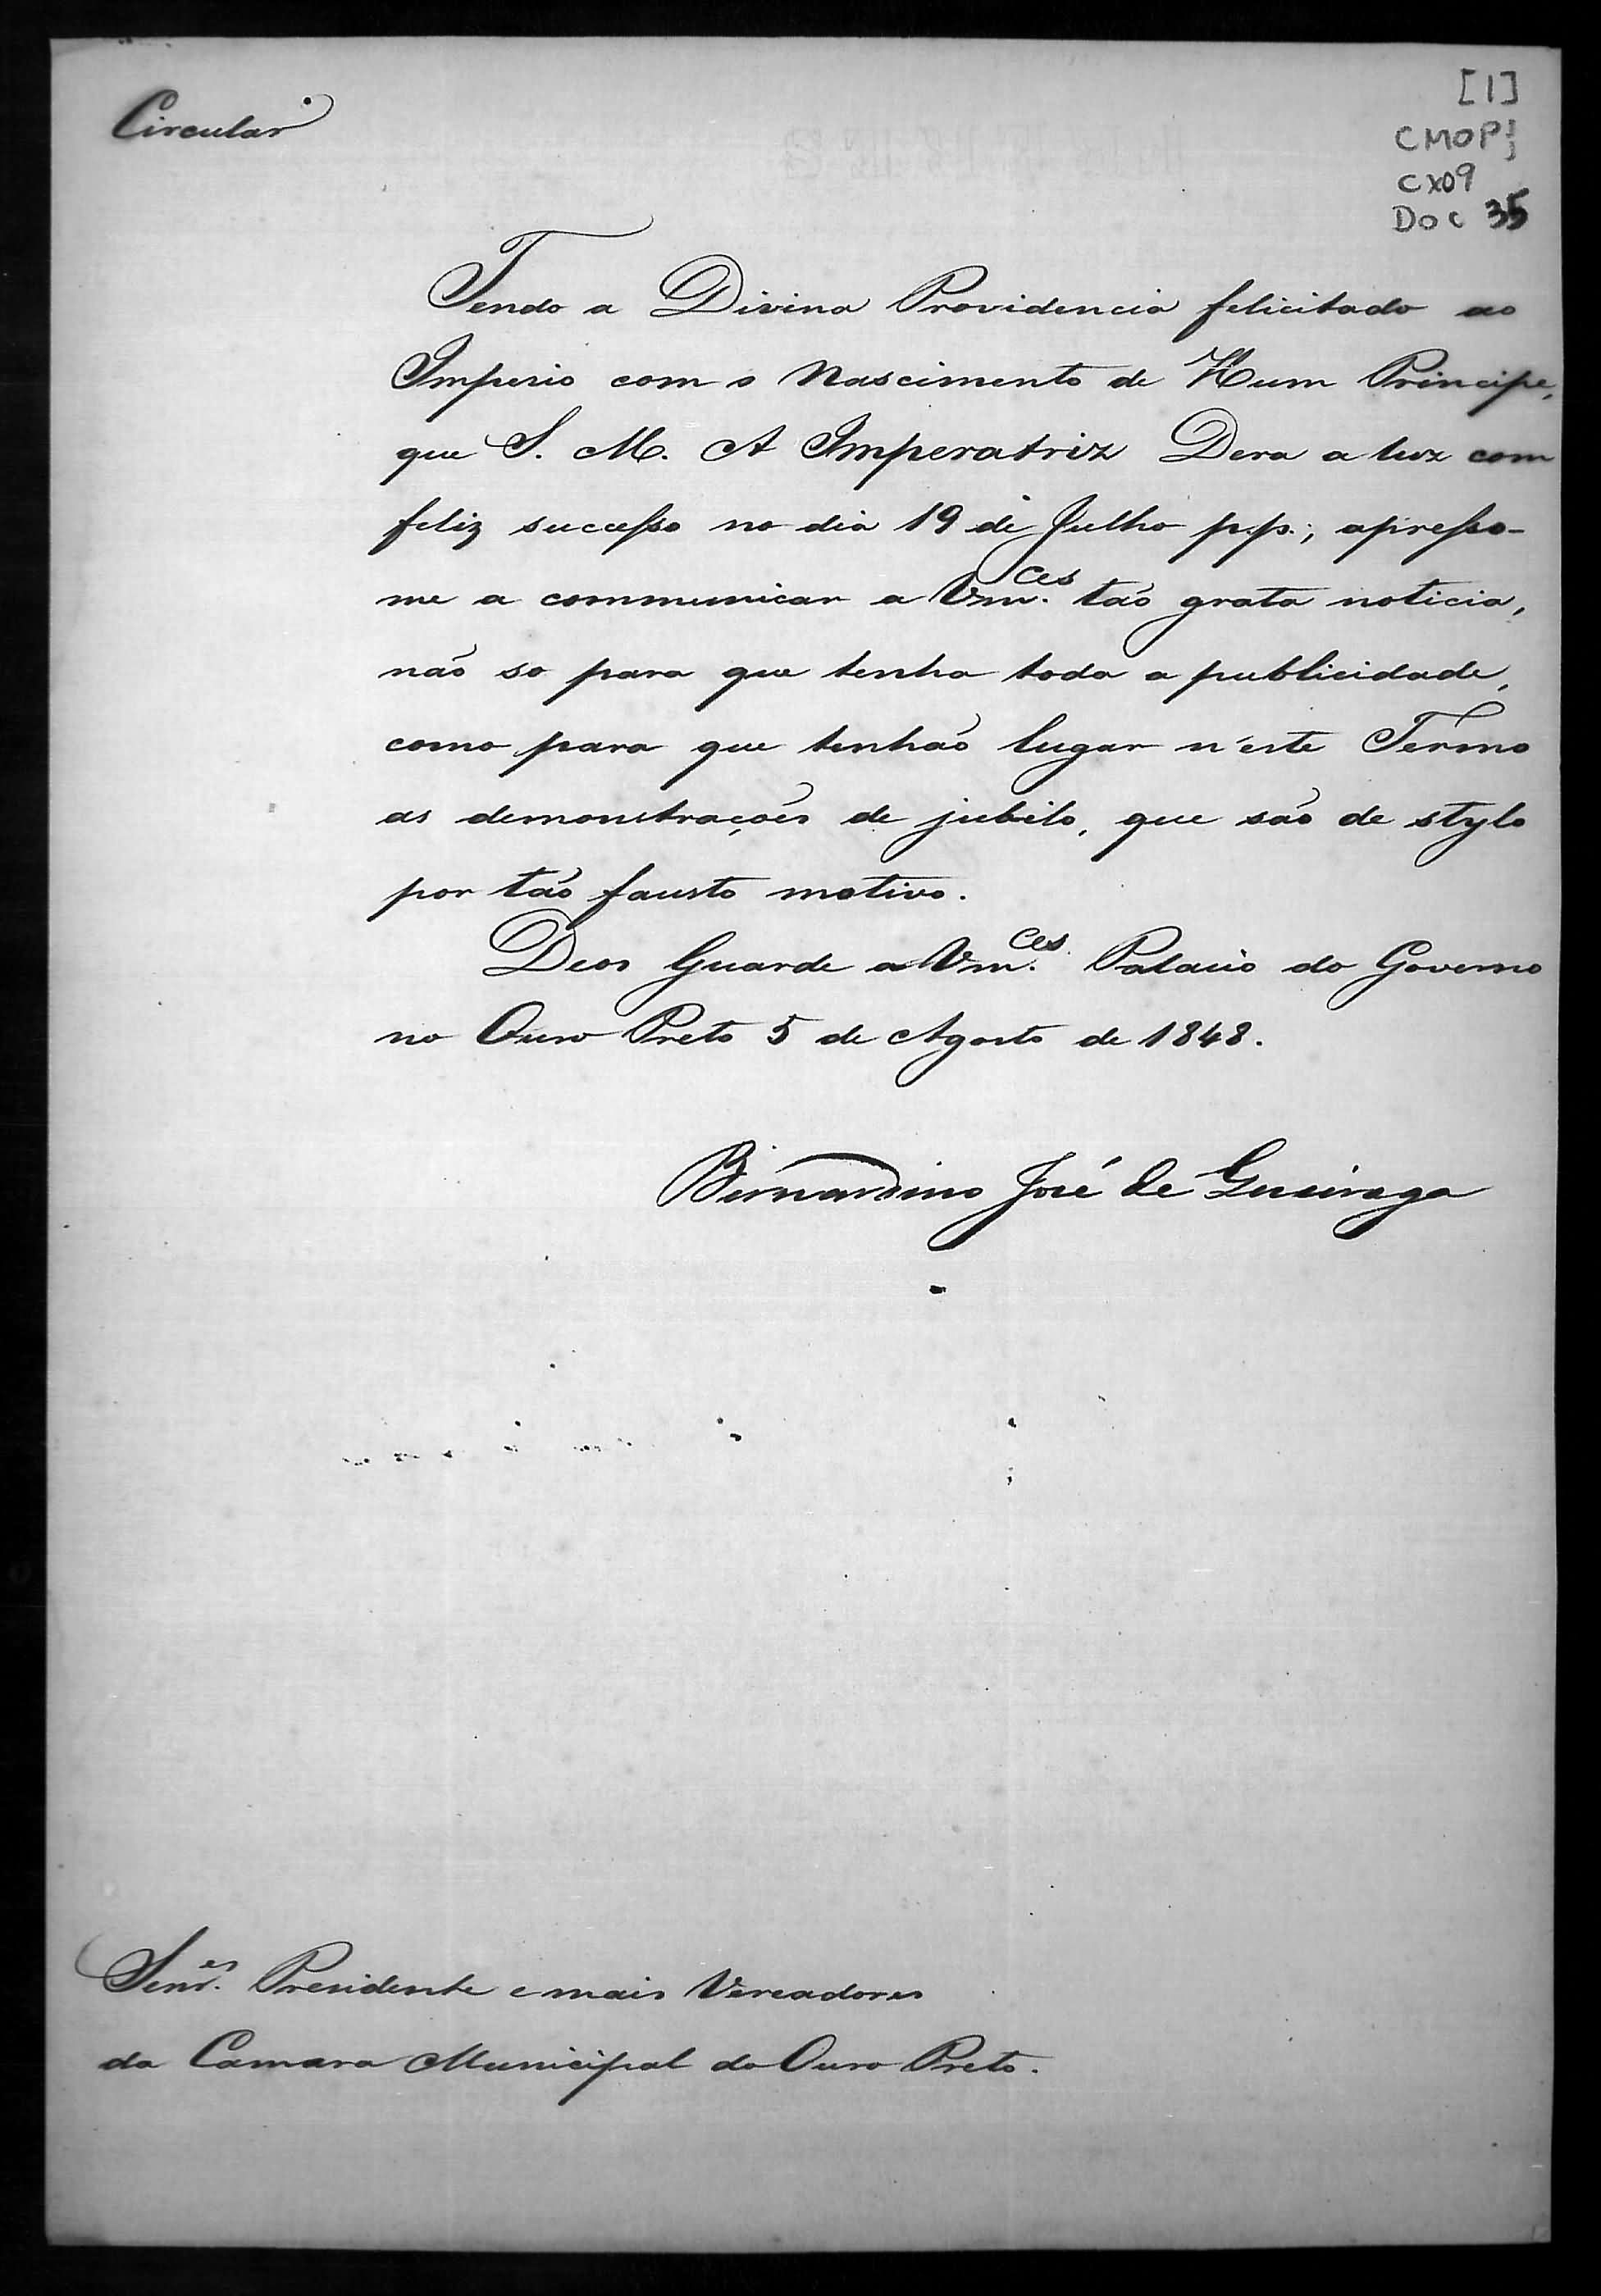 Circular
[1]
CMOP
CX09
DOC 35
Tendo a Divina Providencia felicitado ao
Imperio com o Nascimento de Hum Principe,
que S. M. A Imperatriz Dera a luz com
feliz successo no dia 19 de Julho p.p.; apresso-
me a communicar a Vm.ces tão grata noticia,
não so para que tenha toda a publicidade,
como para que tenhão lugar n'este Termo
as demonstrações de jubilo, que são de stylo
por tão fausto motivo.
Deos Guarde a Vm.ces Palacio do Governo
no Ouro Preto 5 de Agosto de 1848.
Bernardino José de Queiroga
Senr.es Presidente e mais Vereadores
da Camara Municipal do Ouro Preto.